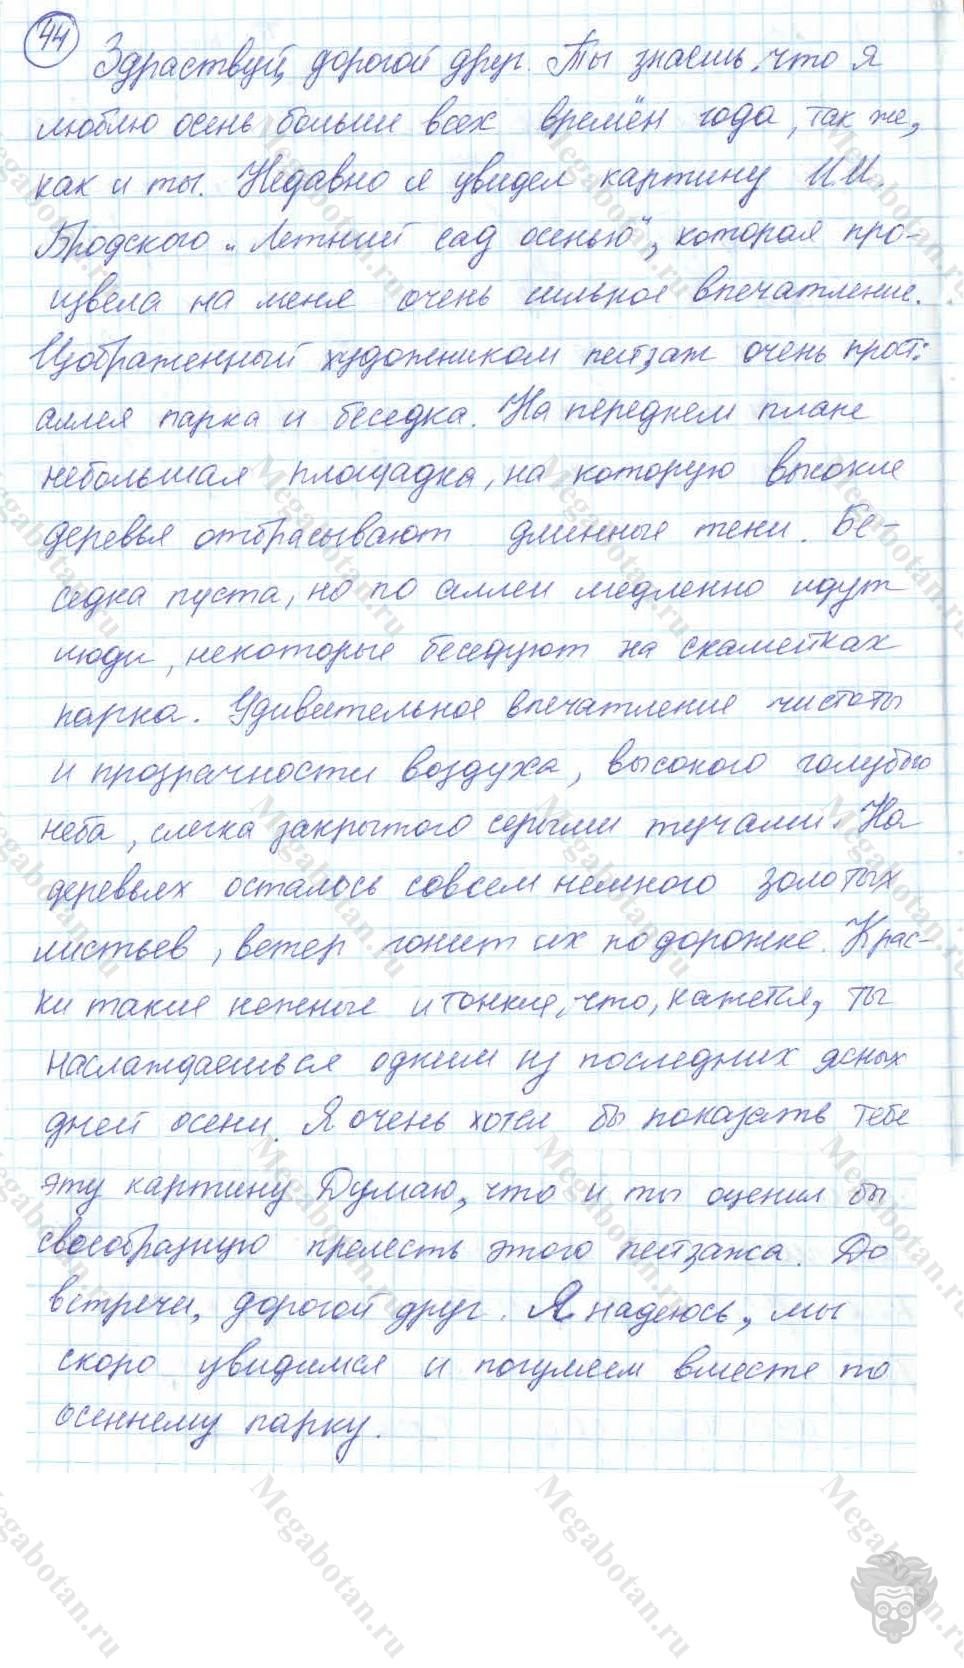 44
Здраствуй, дорогой друг. Ты знаешь, что я
люблю осень больше всех времён года, так же,
как и ты. Недавно я увидел картину И.И.
Бродского „Летний сад осенью", которая про-
извела на меня очень сильное впечатление.
Изображенный художником пейзаж очень прост:
аллея парка и беседка. На переднем плане
небольшая площадка, на которую высокие
деревья отбрасывают длинные тени. Бе-
седка пуста, но по аллеи медленно идут
люди, некоторые беседуют на скамейках
парка. Удивительное впечатление чистоты
и прозрачности воздуха, высокого голубого
неба, слегка закрытого серыми тучами. На
деревьях осталось совсем немного золотых
листьев, ветер гонит их по дорожке. Крас-
ки такие нежные и тонкие, что, кажется, ты
наслаждаешься одним из последних ясных
дней осени. Я очень хотел бы показать тебе
эту картину Думаю, что и ты оценил бы
своеобразную прелесть этого пейзажа. До
встречи, дорогой друг. Я надеюсь, мы
скоро увидимся и погуляем вместе по
осеннему парку.
Megabotan.ru